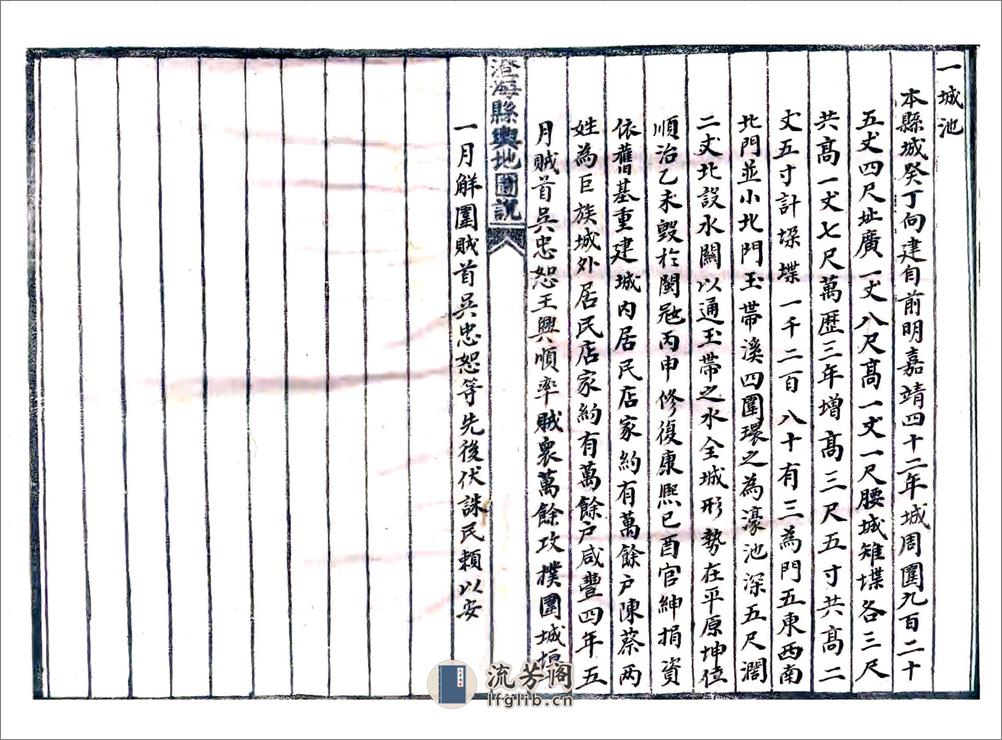 一城池
本縣城癸丁向建自前明嘉靖四十二年城周圍九百二十
五丈四尺址廣一丈八尺高一丈一尺腰城雉堞各三尺
共高一丈七尺萬歷三年增高三尺五寸共高二
丈五寸計垛堞一千二百八十有三為門五東西南
北門並小北門玉帶溪四圍環之為濠池深五尺濶
二丈北設水關以通玉帶之水全城形勢在平原坤位
順治乙未毀於閩冦丙申修復康熙己酉官紳捐資
依舊基重建城內居民店家約有萬餘户陳蔡兩
姓為巨族城外居民店家約有萬餘户咸豐四年五
月賊首吳忠恕王興順率賊衆萬餘攻撲圍城垣
澄海縣輿地圖說
一月解圍賊首吳忠恕等先後伏誅民賴以安
流芳阁
lfglib.cn